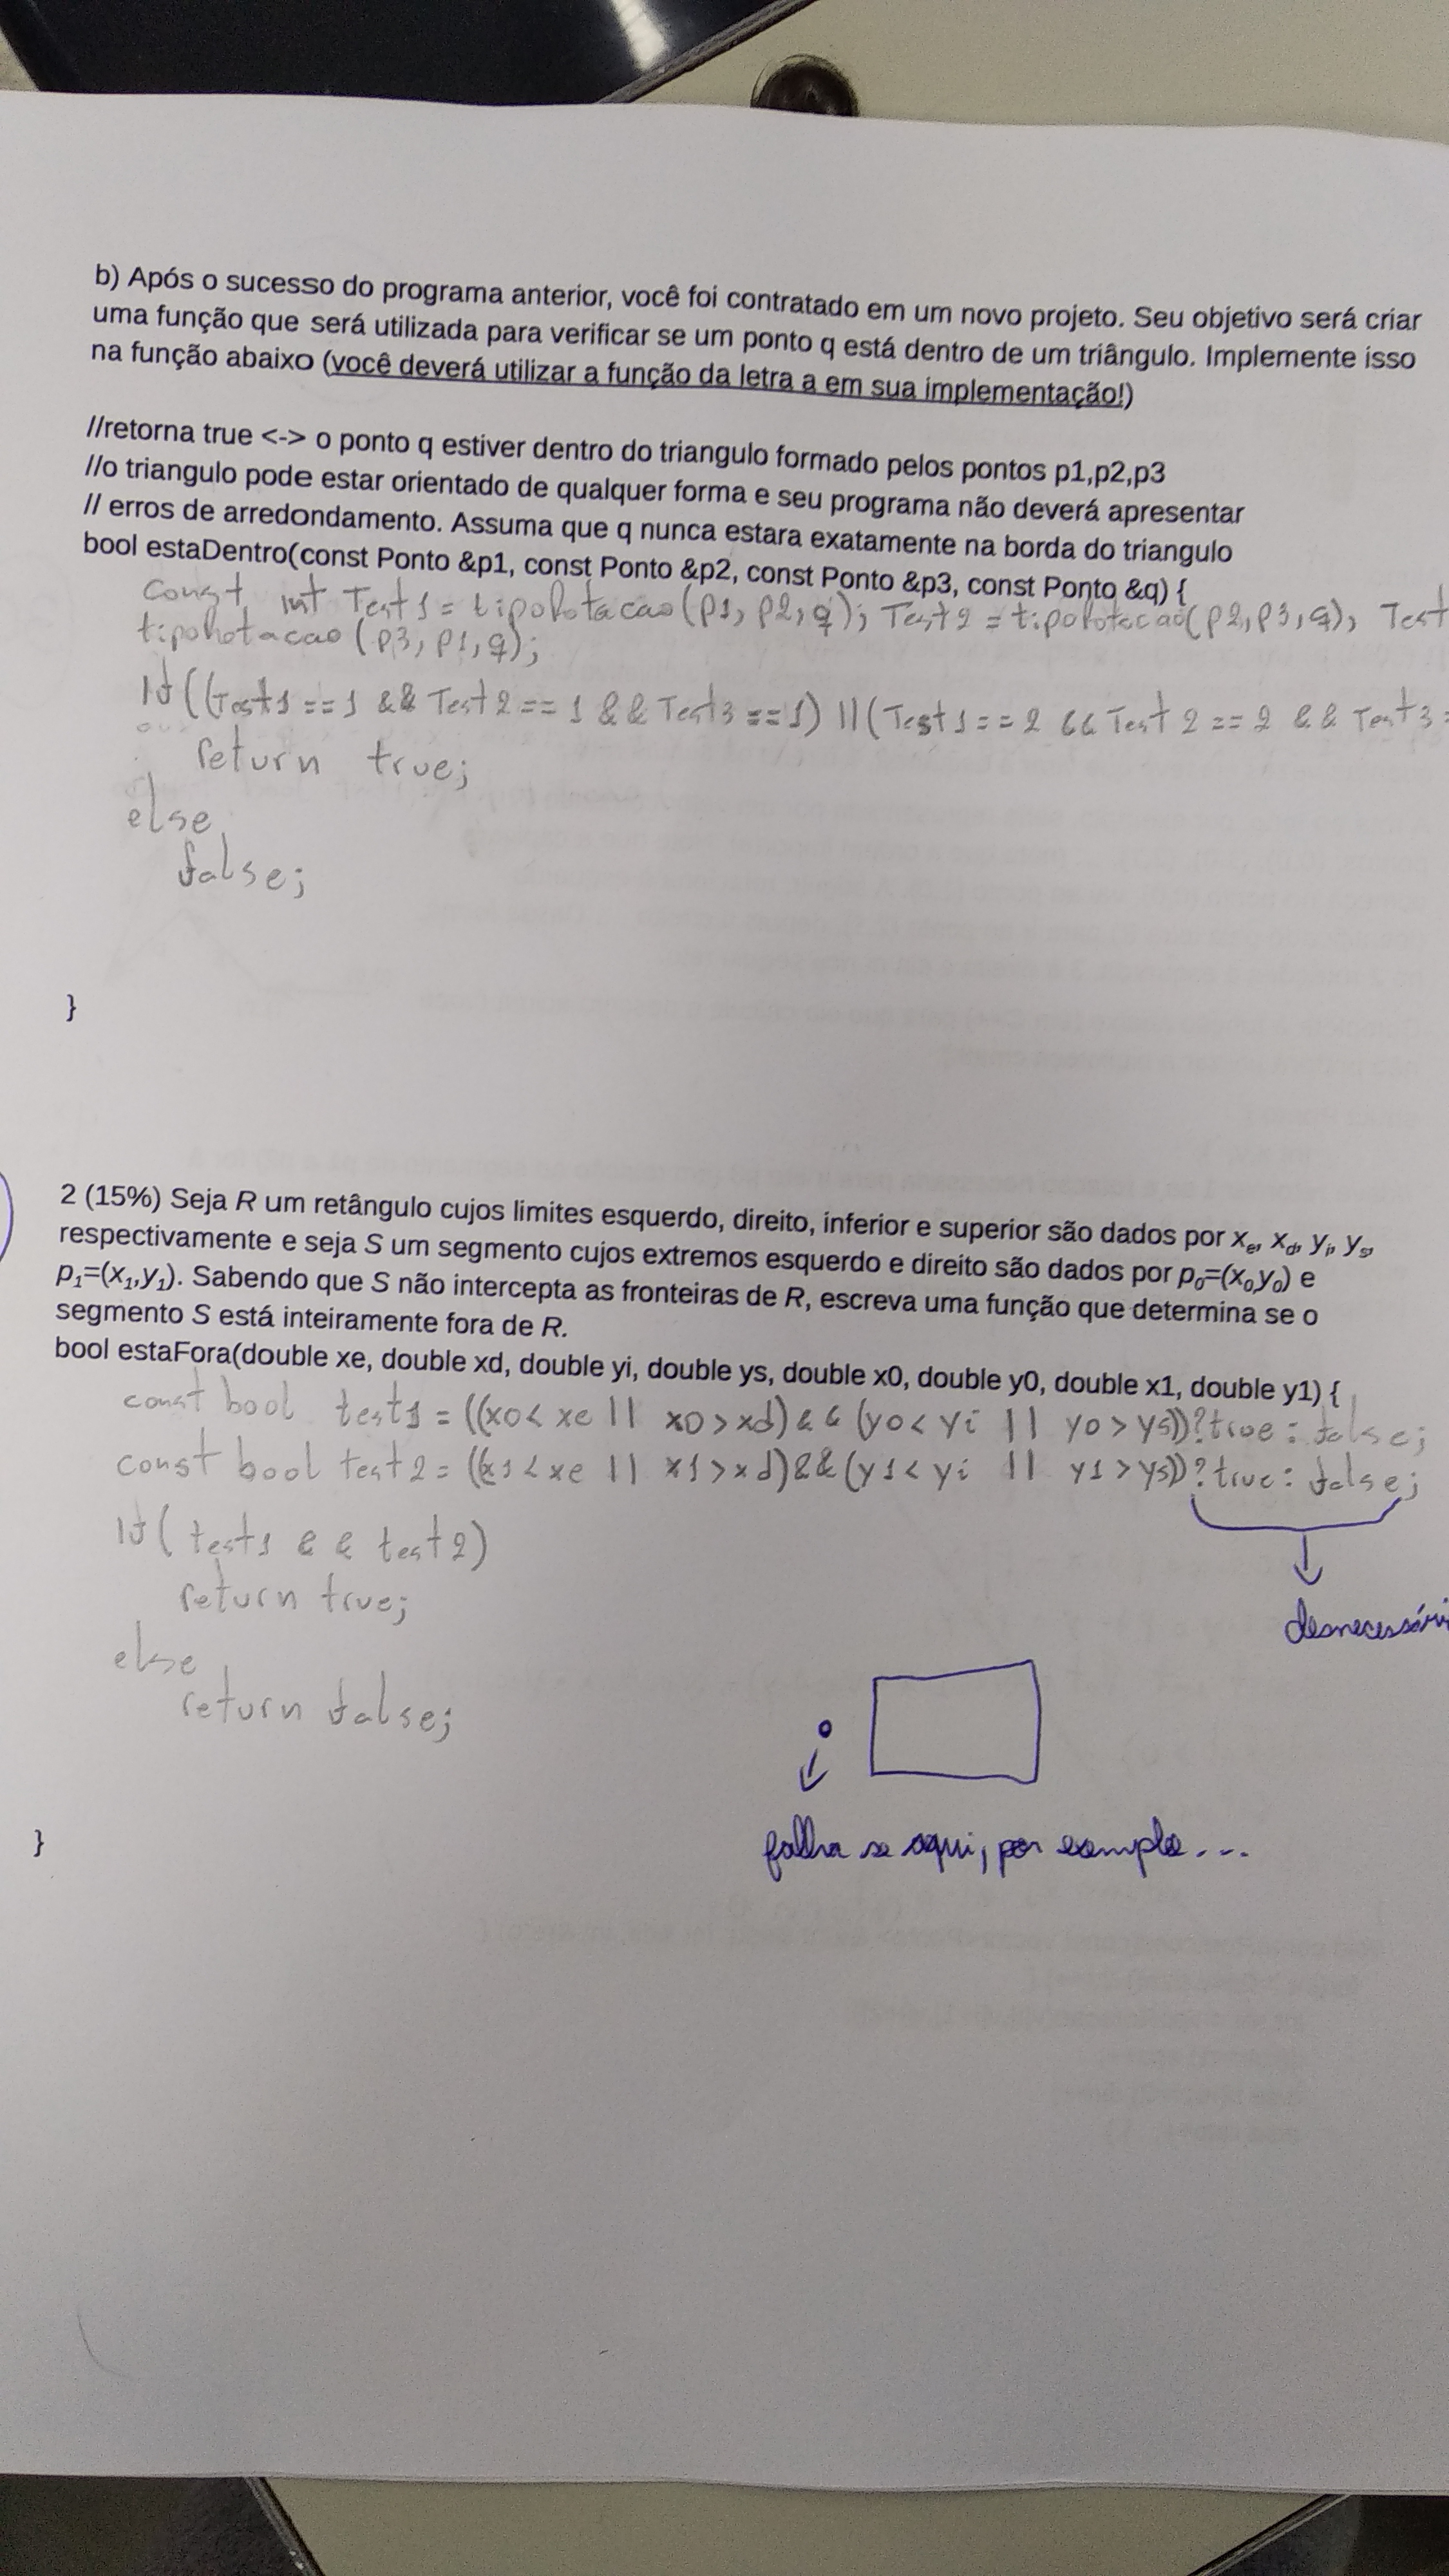 b) Após o sucesso do programa anterior, você foi contratado em um novo projeto. Seu objetivo será criar
uma função que será utilizada para verificar se um ponto q está dentro de um triângulo. Implemente isso
na função abaixo (você deverá utilizar a função da letra a em sua implementação!)
//retorna true <-> o ponto q estiver dentro do triangulo formado pelos pontos p1,p2,p3
//o triangulo pode estar orientado de qualquer forma e seu programa não deverá apresentar
// erros de arredondamento. Assuma que q nunca estara exatamente na borda do triangulo
bool estaDentro(const Ponto &p1, const Ponto &p2, const Ponto &p3, const Ponto &q) {
const int Test1 = tipoRotacao(p1, p2, q); Test2 = tipoRotacao(p2, p3, q), Test
tipoRotacao(p3, p1, q);
If((Test1 == 1 && Test2 == 1 && Test3 == 1) || (Test1 == 2 && Test2 == 2 && Test3 =
return true;
else
false;
}
2 (15%) Seja R um retângulo cujos limites esquerdo, direito, inferior e superior são dados por xe, xd, yi, ys,
respectivamente e seja S um segmento cujos extremos esquerdo e direito são dados por p0=(x0,y0) e
p1=(x1,y1). Sabendo que S não intercepta as fronteiras de R, escreva uma função que determina se o
segmento S está inteiramente fora de R.
bool estaFora(double xe, double xd, double yi, double ys, double x0, double y0, double x1, double y1) {
const bool test1 = ((x0 < xe || x0 > xd) && (y0 < yi || y0 > ys))?true : false;
const bool test2 = ((x1 < xe || x1 > xd) && (y1 < yi || y1 > ys))?true : false;
If( test1 && test2)
return true;
desnecessári
else
return false;
falha se aqui, por exemplo...
}